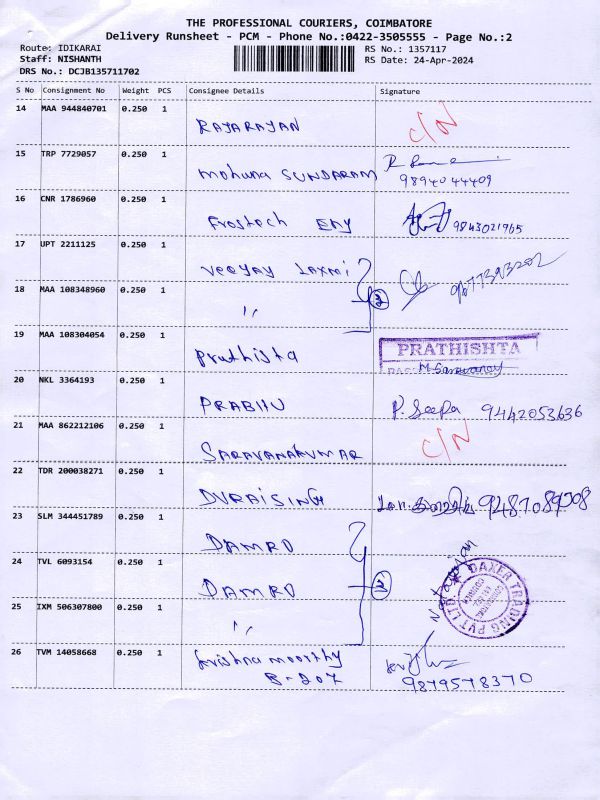 THE PROFESSIONAL COURIERS, COIMBATORE
Delivery Runsheet - PCM - Phone No.:0422-3505555 - Page No.:2
Route: IDIKARAI RS No.: 1357117
Staff: NISHANTH RS Date: 24-Apr-2024
DRS No.: DCJB135711702
S No Consignment No Weight PCS Consignee Details Signature
14 MAA 944840701 0.250 1 RAJARAYAN C/N
15 TRP 7729057 0.250 1 Mohana SUNDARAM
9894044409
16 CNR 1786960 0.250 1 Frostech Eny 9843021965
17 UPT 2211125 0.250 1 Veejay Laxmi
18 MAA 108348960 0.250 1 〃 2
19 MAA 108304054 0.250 1 Prathista PRATHISHTA
M Saravanan
20 NKL 3364193 0.250 1 PRABHU P. Seepa 9442053636
21 MAA 862212106 0.250 1 SARAVANAKUMAR C/N
22 TDR 200038271 0.250 1 DURAISINGH 9487089008
23 SLM 344451789 0.250 1 DAMRO
24 TVL 6093154 0.250 1 DAMRO Natarajan DAXER TRADING PVT LTD
25 IXM 506307800 0.250 1 〃
26 TVM 14058668 0.250 1 Krishna moorthy
B-207 9879578370